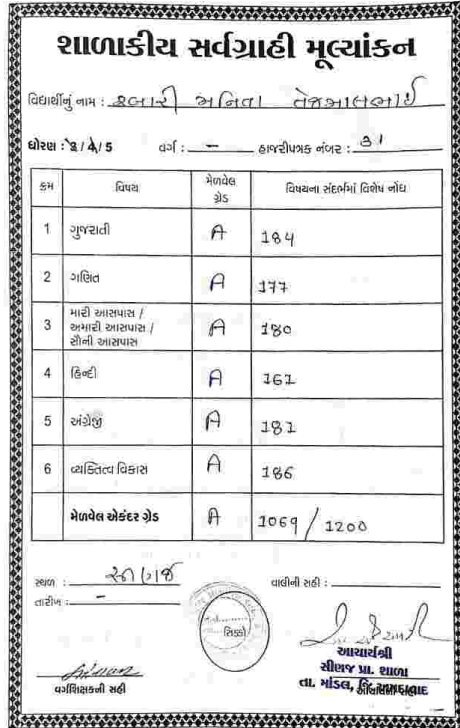 શાળાકીય સર્વગ્રાહી મૂલ્યાંકન
વિદ્યાર્થીનું નામ : રબારી અનિતા તેજમાલભાઈ
ધોરણ : 3 / 4 / 5 વર્ગ : - હાજરીપત્રક નંબર : 31
ક્રમ વિષય મેળવેલ ગ્રેડ વિષયના સંદર્ભમાં વિશેષ નોંધ
1 ગુજરાતી A 184
2 ગણિત A 177
3 મારી આસપાસ / અમારી આસપાસ / સૌની આસપાસ A 180
4 હિન્દી A 161
5 અંગ્રેજી A 181
6 વ્યક્તિત્વ વિકાસ A 186
મેળવેલ એકંદર ગ્રેડ A 1069 / 1200
સ્થળ : વાલીની સહી :
તારીખ : -
સિક્કો
આચાર્યશ્રી
સીણજ પ્રા. શાળા
તા. માંડલ, જિ. અમદાવાદ
વર્ગશિક્ષકની સહી